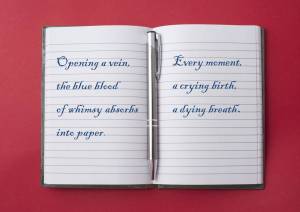 Opening a vein,
the blue blood
of whimsy absorbs
into paper.
Every moment,
a crying birth,
a dying breath.